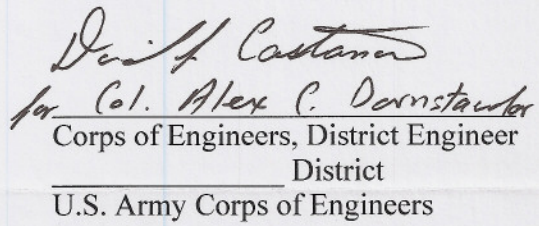 David Castanon
for Col. Alex C. Dornstauder
Corps of Engineers, District Engineer
District
U.S. Army Corps of Engineers